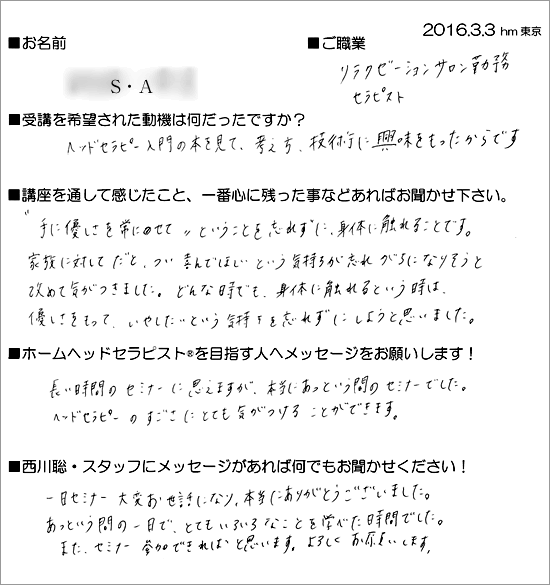 2016.3.3 hm東京
■お名前
■ご職業
S・A
リラクゼーションサロン勤務
セラピスト
■受講を希望された動機は何だったですか？
ヘッドセラピー入門の本を見て、考え方、技術に興味をもったからです
■講座を通して感じたこと、一番心に残った事などあればお聞かせ下さい。
"手に優しさを常にのせて"ということを忘れずに、身体に触れることです。
家族に対してだと、つい喜んでほしいという気持ちが忘れがちになりそうと
改めて気がつきました。どんな時でも、身体に触れるという時は、
優しさをもって、いやしたいという気持ちを忘れずにしようと思いました。
■ホームヘッドセラピスト®を目指す人へメッセージをお願いします！
長い時間のセミナーに思えますが、本当にあっという間のセミナーでした。
ヘッドセラピーのすごさにとても気がつけることができます。
■西川聡・スタッフにメッセージがあれば何でもお聞かせください！
一日セミナー大変お世話になり、本当にありがとうございました。
あっという間の一日で、とてもいろいろなことを学べた時間でした。
また、セミナー参加できればと思います。よろしくお願いします。